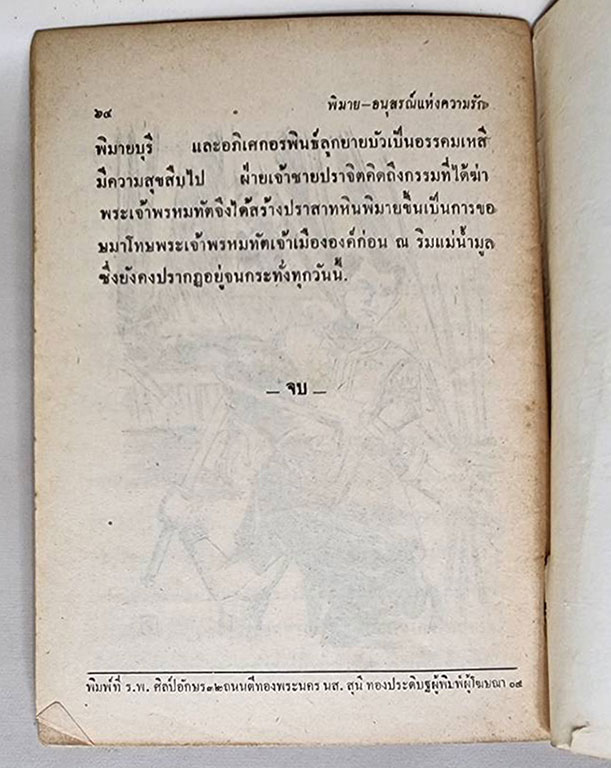 ๖๔ พิมาย-อนุสรณ์แห่งความรัก
พิมายบุรี และอภิเศกอรพินธ์ลูกยายบัวเป็นอรรคมเหสี
มีความสุขสืบไป ฝ่ายเจ้าชายปราจิตคิดถึงกรรมที่ได้ฆ่า
พระเจ้าพรหมทัตจึงได้สร้างปราสาทหินพิมายขึ้นเป็นการขอ
ษมาโทษพระเจ้าพรหมทัตเจ้าเมืององค์ก่อน ณ ริมแม่น้ำมูล
ซึ่งยังคงปรากฏอยู่จนกระทั่งทุกวันนี้.
– จบ –
พิมพ์ที่ ร.พ. ศิลป์อักษร ๓๒ ถนนตีทองพระนคร นส. สุนี ทองประดิษฐผู้พิมพ์ผู้โฆษณา